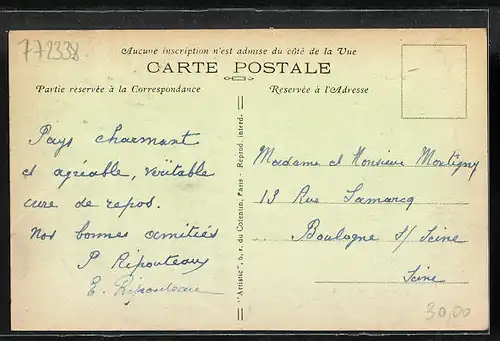 772338
Aucune inscription n'est admise du côté de la Vue
CARTE POSTALE
Partie reservée à la Correspondance
Reservée à l'Adresse
Pays charmant
et agréable, véritable
cure de repos.
Nos bonnes amitiés
P Ripouteau
E. Ripouteau
"Artistic", 6, r. du Cotentin, Paris - Reprod. interd.
Madame et Monsieur Montigny
13 Rue Samarcq
Boulogne s/ Seine
Seine
30,00